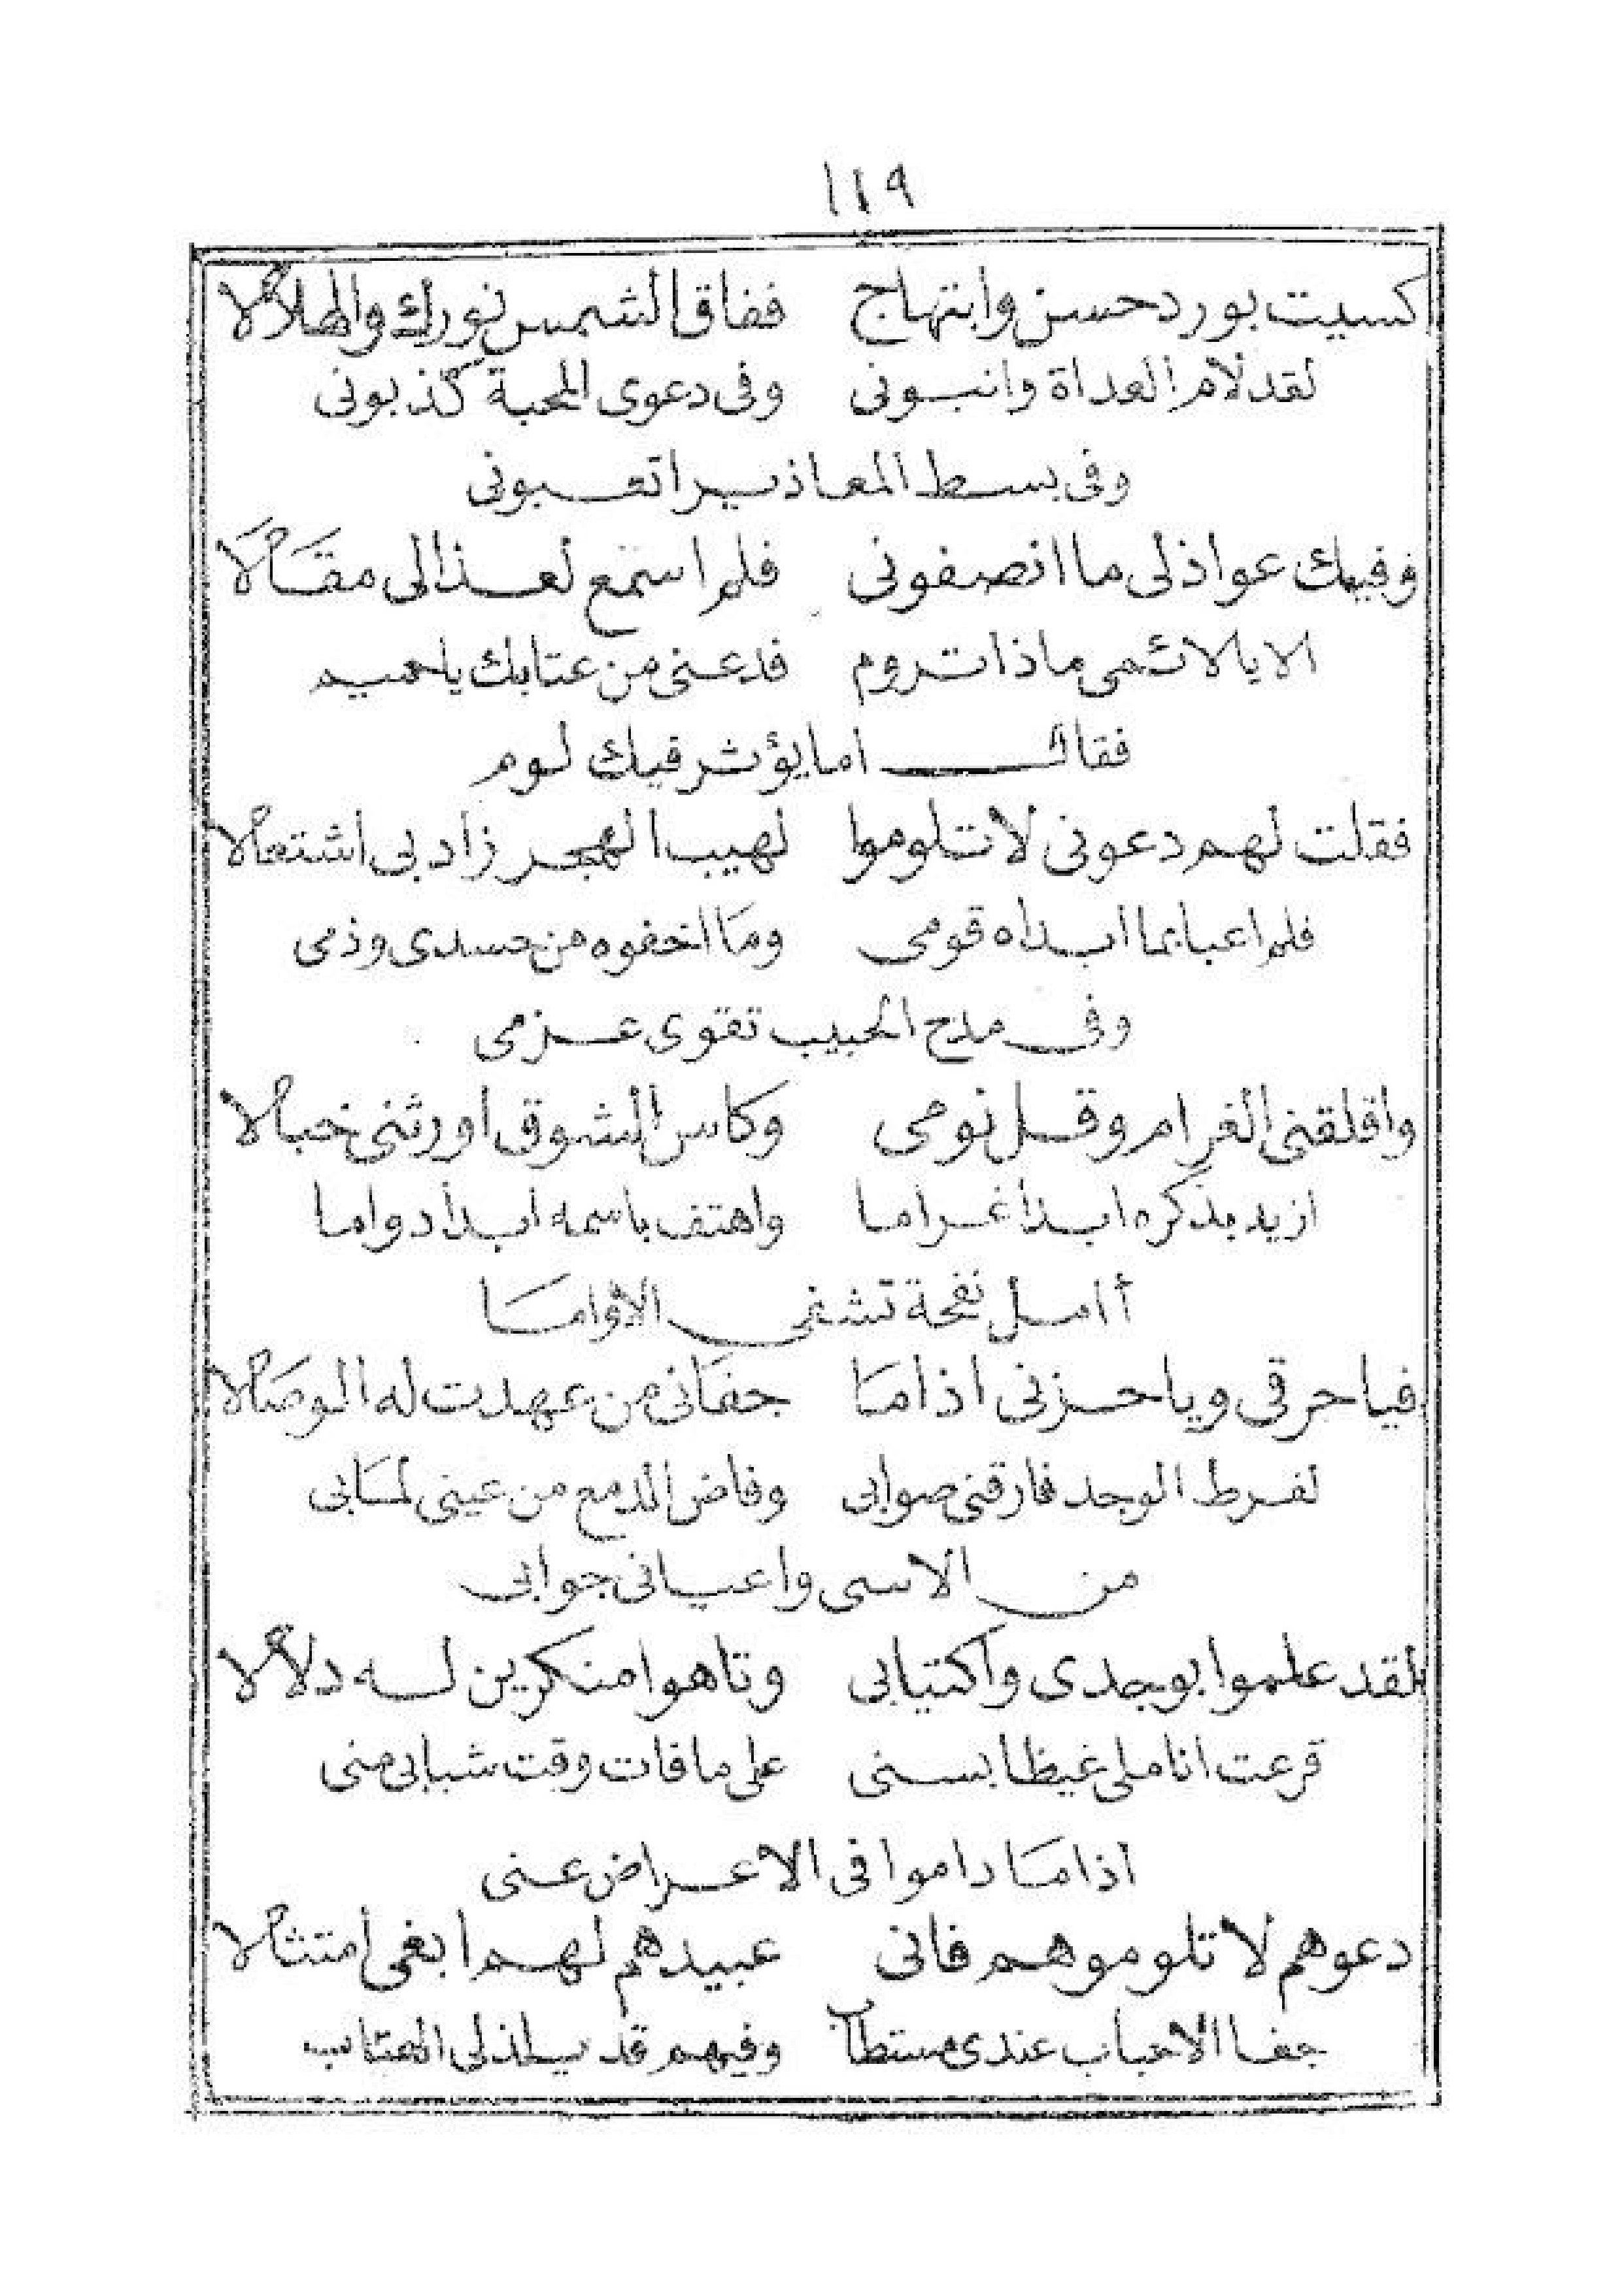 ١١٩
كسيت بورد حسن وابتهاج ففاق الشمس نورك والهلالا
لقد لام العداة وانبونى وفى دعوى المحبة كذبونى
وفى بسط المعاذير اتعبونى
وفيك عواذلى ما انصفونى فلم اسمع لعذالى مقالا
الا يا لائمى ماذا تروم فدعنى من عتابك يا حميم
فقال اما يؤثر فيك لوم
فقلت لهم دعونى لا تلوموا لهيب الهجر زاد بى اشتعالا
فلم اعبا بما ابداه قومى وما اخفوه من حسدى وذمى
وفى مدح الحبيب تقوى عزمى
واقلقنى الغرام وقل نومى وكاس الشوق اورثنى خبالا
ازيد بذكره ابدا غراما واهتف باسمه ابدا دواما
أامل نفحة تشفى الاواما
فيا حرقى ويا حزنى اذا ما جفانى من عهدت له الوصالا
لفرط الوجد فارقنى صوابى وفاض الدمع من عينى لمابى
من الاسى واعيانى جوابى
لقد علموا بوجدى واكتيابى وتاهوا منكرين له دلالا
قرعت اناملى غيظا بسنى على ما فات وقت شبابى منى
اذا ما داموا فى الاعراض عنى
دعوهم لا تلوموهم فانى عبيدهم لهم ابغى امتثالا
جفا الاحباب عندى مستطاب وفيهم قد يلذ لى العتاب